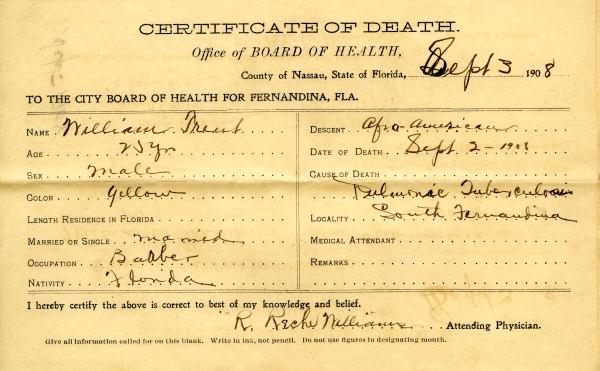 CERTIFICATE OF DEATH.
Office of BOARD OF HEALTH,
County of Nassau, State of Florida, Sept 3 1908
TO THE CITY BOARD OF HEALTH FOR FERNANDINA, FLA.
NAME William Trent
AGE 25 yr
SEX Male
COLOR Yellow
LENGTH RESIDENCE IN FLORIDA
MARRIED OR SINGLE married
OCCUPATION Barber
NATIVITY Florida
DESCENT Afro-American
DATE OF DEATH Sept 2 - 1908
CAUSE OF DEATH
Pulmonac Tuberculosis
LOCALITY South Fernandina
MEDICAL ATTENDANT
REMARKS
I hereby certify the above is correct to best of my knowledge and belief.
R. Williams Attending Physician.
Give all information called for on this blank. Write in ink, not pencil. Do not use figures in designating month.